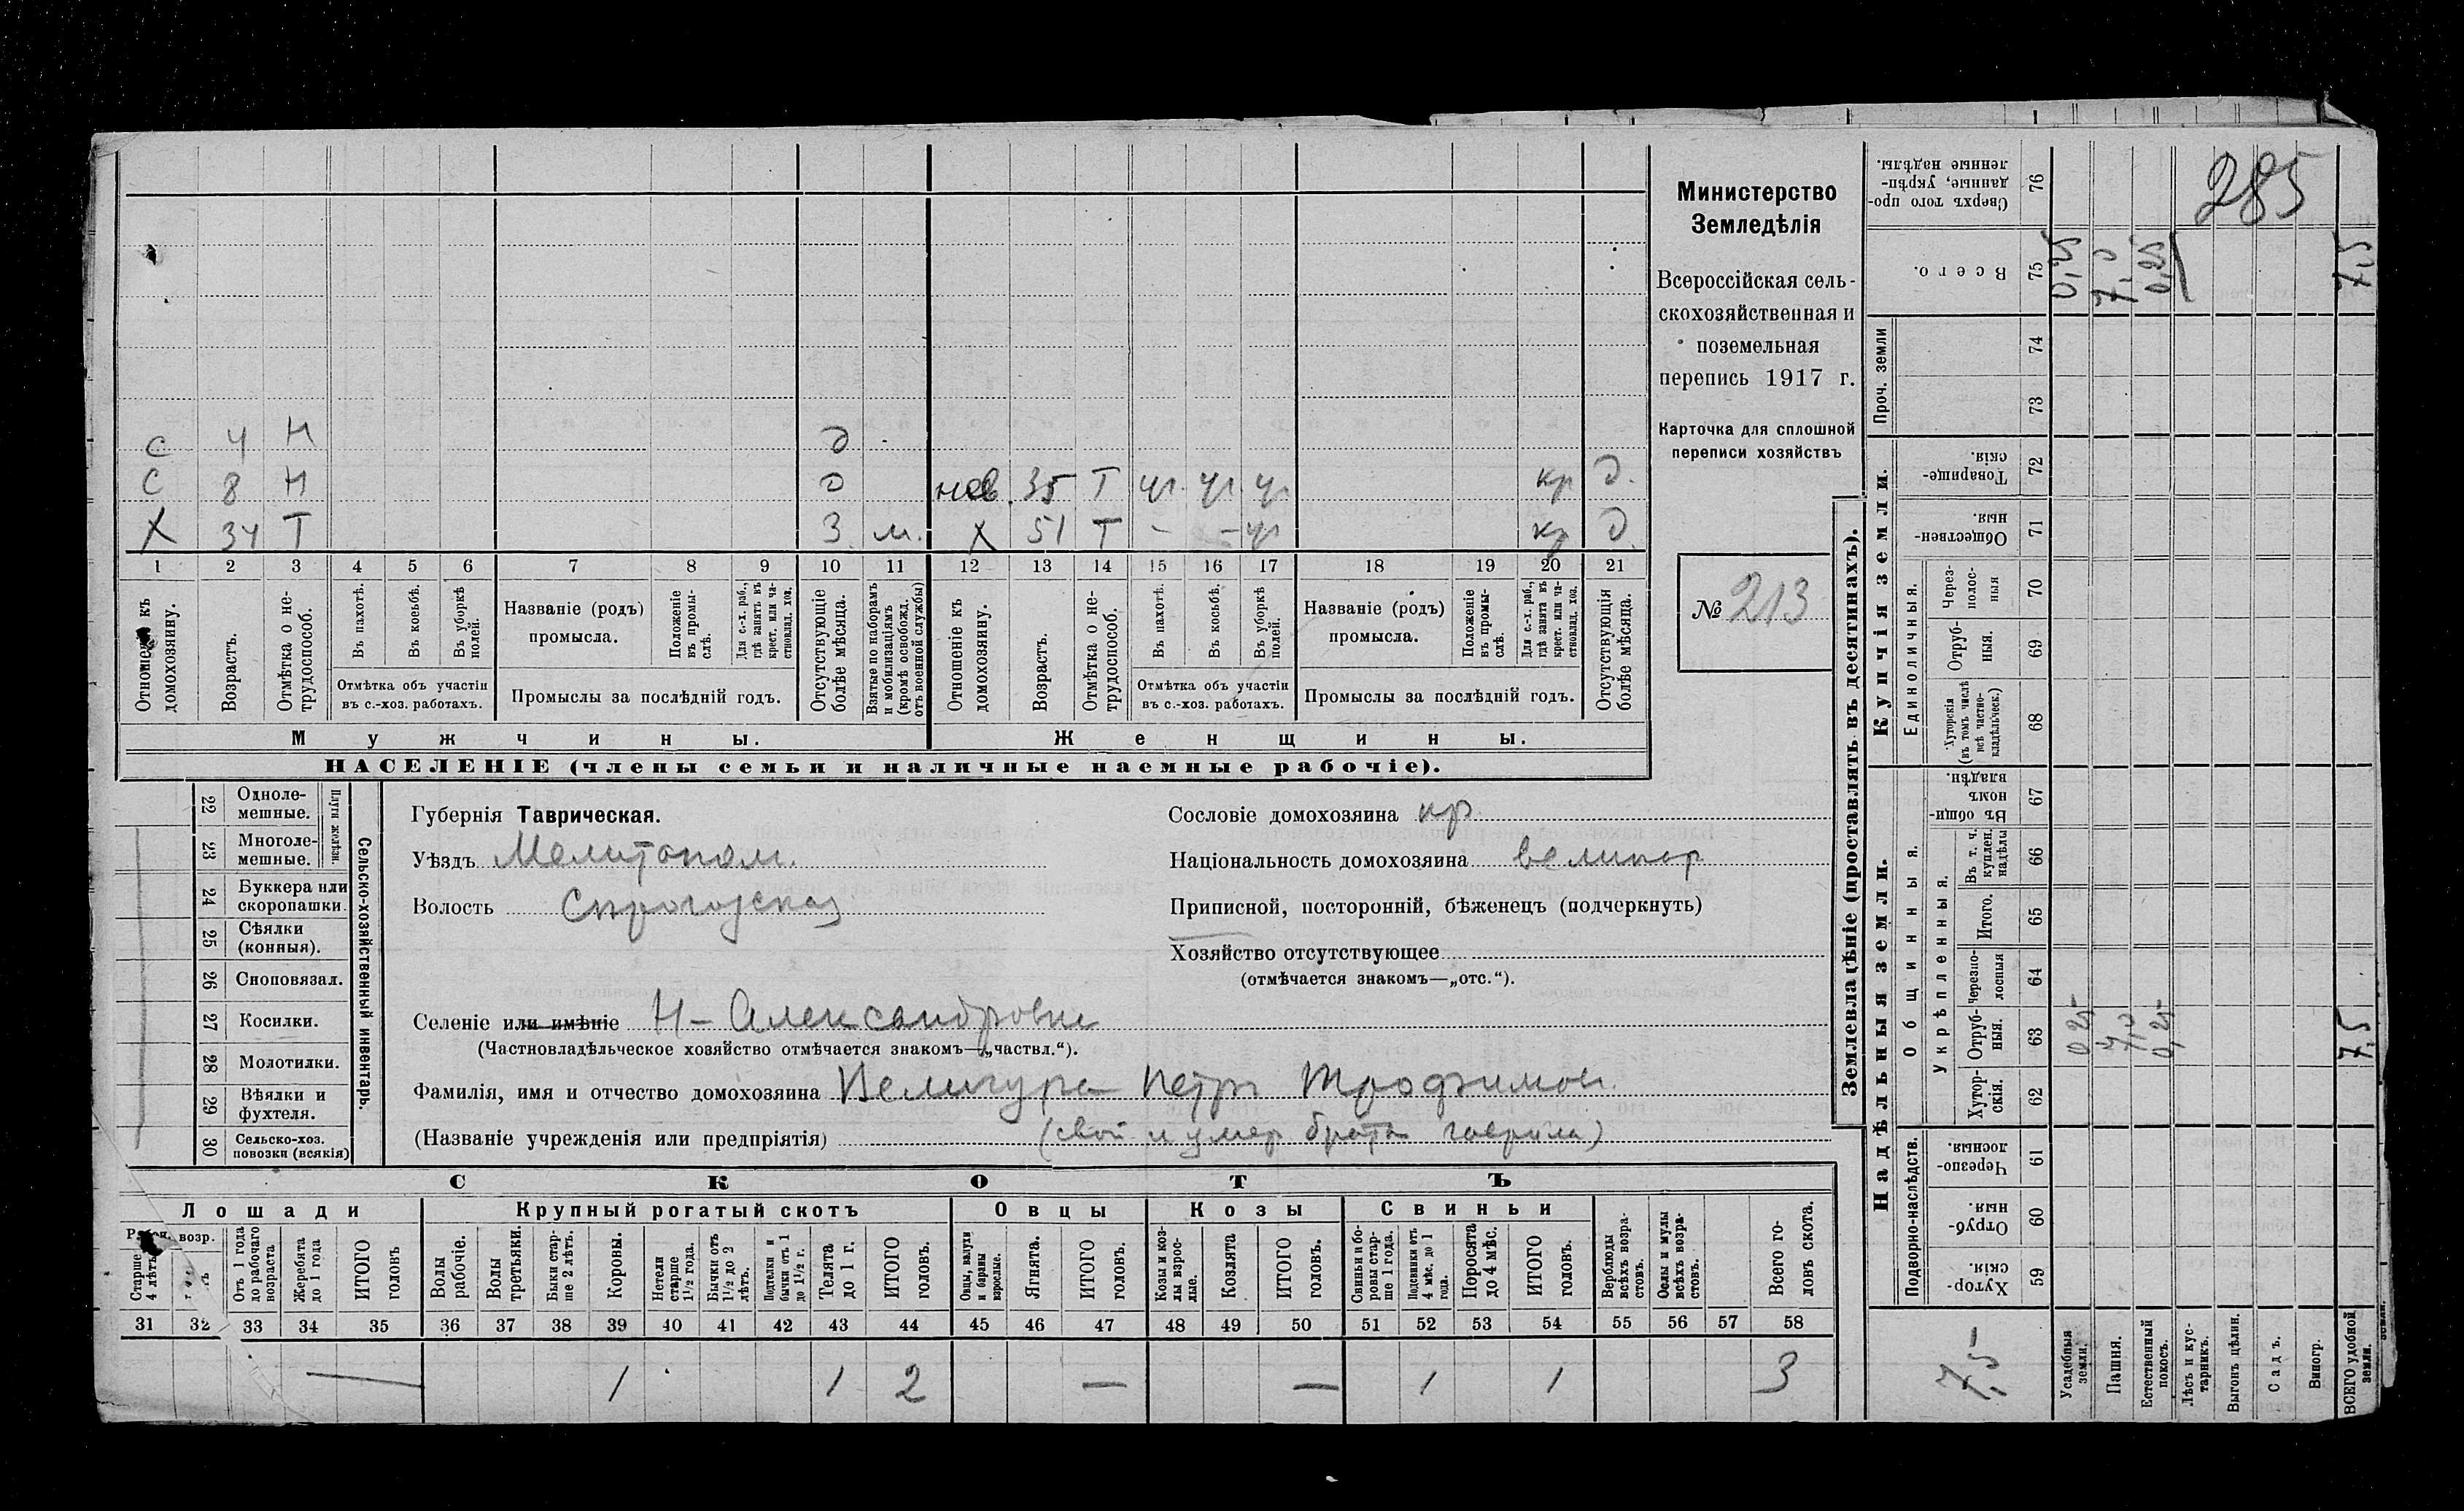 285
Министерство
Земледѣлія
Всероссійская сель-
скохозяйственная и
поземельная
перепись 1917 г.
Карточка для сплошной
переписи хозяйствъ
№ 213
с 4 Н д
с 8 Н д нев. 35 Т ур. ур. ур кр д.
Х 34 Т З м. Х 51 Т - - ур кр д.
1 2 3 4 5 6 7 8 9 10 11 12 13 14 15 16 17 18 19 20 21
Отношеніе къ домохозяину.
Возрастъ.
Отмѣтка о не-
трудоспособ.
Въ пахотѣ.
Въ косьбѣ.
Въ уборкѣ
полей.
Отмѣтка объ участіи
въ с.-хоз. работахъ.
Названіе (родъ)
промысла.
Положеніе
въ промы-
слѣ.
Для с.-х. раб.,
гдѣ занятъ въ
крест. или ча-
стновлад. хоз.
Промыслы за послѣдній годъ.
Отсутствующіе
болѣе мѣсяца.
Взятые по наборамъ
и мобилизаціямъ
(кромѣ освобожд.
отъ военной службы)
Отношеніе къ
домохозяину.
Возрастъ.
Отмѣтка о не-
трудоспособ.
Въ пахотѣ.
Въ косьбѣ.
Въ уборкѣ
полей.
Отмѣтка объ участіи
въ с.-хоз. работахъ.
Названіе (родъ)
промысла.
Положеніе
въ промы-
слѣ.
Для с.-х. раб.,
гдѣ занята въ
крест. или ча-
стновлад. хоз.
Промыслы за послѣдній годъ.
Отсутствующія
болѣе мѣсяца.
Мужчины.
Женщины.
НАСЕЛЕНІЕ (члены семьи и наличные наемные рабочіе).
Сельско-хозяйственный инвентарь.
Плуги желѣзн.
22 Одноле-
мешные.
23 Многоле-
мешные.
24 Буккера или
скоропашки.
25 Сѣялки
(конныя).
26 Сноповязал.
27 Косилки.
28 Молотилки.
29 Вѣялки и
фухтеля.
30 Сельско-хоз.
повозки (всякія)
Губернія Таврическая.
Уѣздъ Мелитопол.
Волость
Селеніе или имѣніе Н-Александровка
(Частновладѣльческое хозяйство отмѣчается знакомъ—„частвл.“).
Фамилія, имя и отчество домохозяина Велигура Петръ Трофимов.
(Названіе учрежденія или предпріятія) (свой и умер брата гаврила)
Сословіе домохозяина кр.
Національность домохозяина великор
Приписной, посторонній, бѣженецъ (подчеркнуть)
Хозяйство отсутствующее
(отмѣчается знакомъ—„отс.“).
СКОТЪ
Лошади Крупный рогатый скотъ Овцы Козы Свиньи
возр.
Старше
4 лѣтъ
Отъ 1 года
до рабочаго
возраста
Жеребята
до 1 года
ИТОГО
головъ
Волы
рабочіе.
Волы
третьяки.
Быки стар-
ше 2 лѣтъ.
Коровы.
Нетели
старше
1½ года.
Бычки отъ
1½ до 2
лѣтъ.
Подтелки и
бычки отъ 1
до 1½ г.
Телята
до 1 г.
ИТОГО
головъ.
Овцы, валухи
и бараны
взрослые.
Ягнята.
ИТОГО
головъ.
Козы и коз-
лы взрос-
лые.
Козлята
ИТОГО
головъ.
Свиньи и бо-
ровы стар-
ше 1 года.
Подсвинки отъ
4 мѣс. до 1
года.
Поросята
до 4 мѣс.
ИТОГО
головъ.
Верблюды
всѣхъ возра-
стовъ.
Ослы и мулы
всѣхъ возра-
стовъ.
Всего го-
ловъ скота.
31 32 33 34 35 36 37 38 39 40 41 42 43 44 45 46 47 48 49 50 51 52 53 54 55 56 57 58
— 1 1 2 — — 1 1 3
Землевладѣніе (проставлять въ десятинахъ).
Надѣльныя земли.
Купчія земли.
Проч. земли
Подворно-наслѣдств.
Общинныя.
Укрѣпленныя.
Единоличныя.
Сверхъ того про-
данные, укрѣп-
ленные надѣлы.
76
Всего.
75 0,25 7,0 0,25 7,5
74
73
Товарище-
скія.
72
Обществен-
ныя.
71
Через-
полос-
ныя
70
Отруб-
ныя.
69
Хуторскія
(въ томъ числѣ
всѣ частно-
владѣльческ.)
68
Въ общин-
номъ
владѣн.
67
Въ т. ч.
куплен.
надѣлы
66
Итого.
65
Черезпо-
лосныя
64
Отруб-
ныя.
63 0,25 7,0 0,25 7,5
Хутор-
скія.
62
Черезпо-
лосныя.
61
Отруб-
ныя.
60
Хутор-
скія.
59
7,5
Усадебныя
земли.
Пашня.
Естественный
покосъ.
Лѣсъ и кус-
тарникъ.
Выгонъ цѣлин.
Садъ.
Виногр.
ВСЕГО удобной
земли.